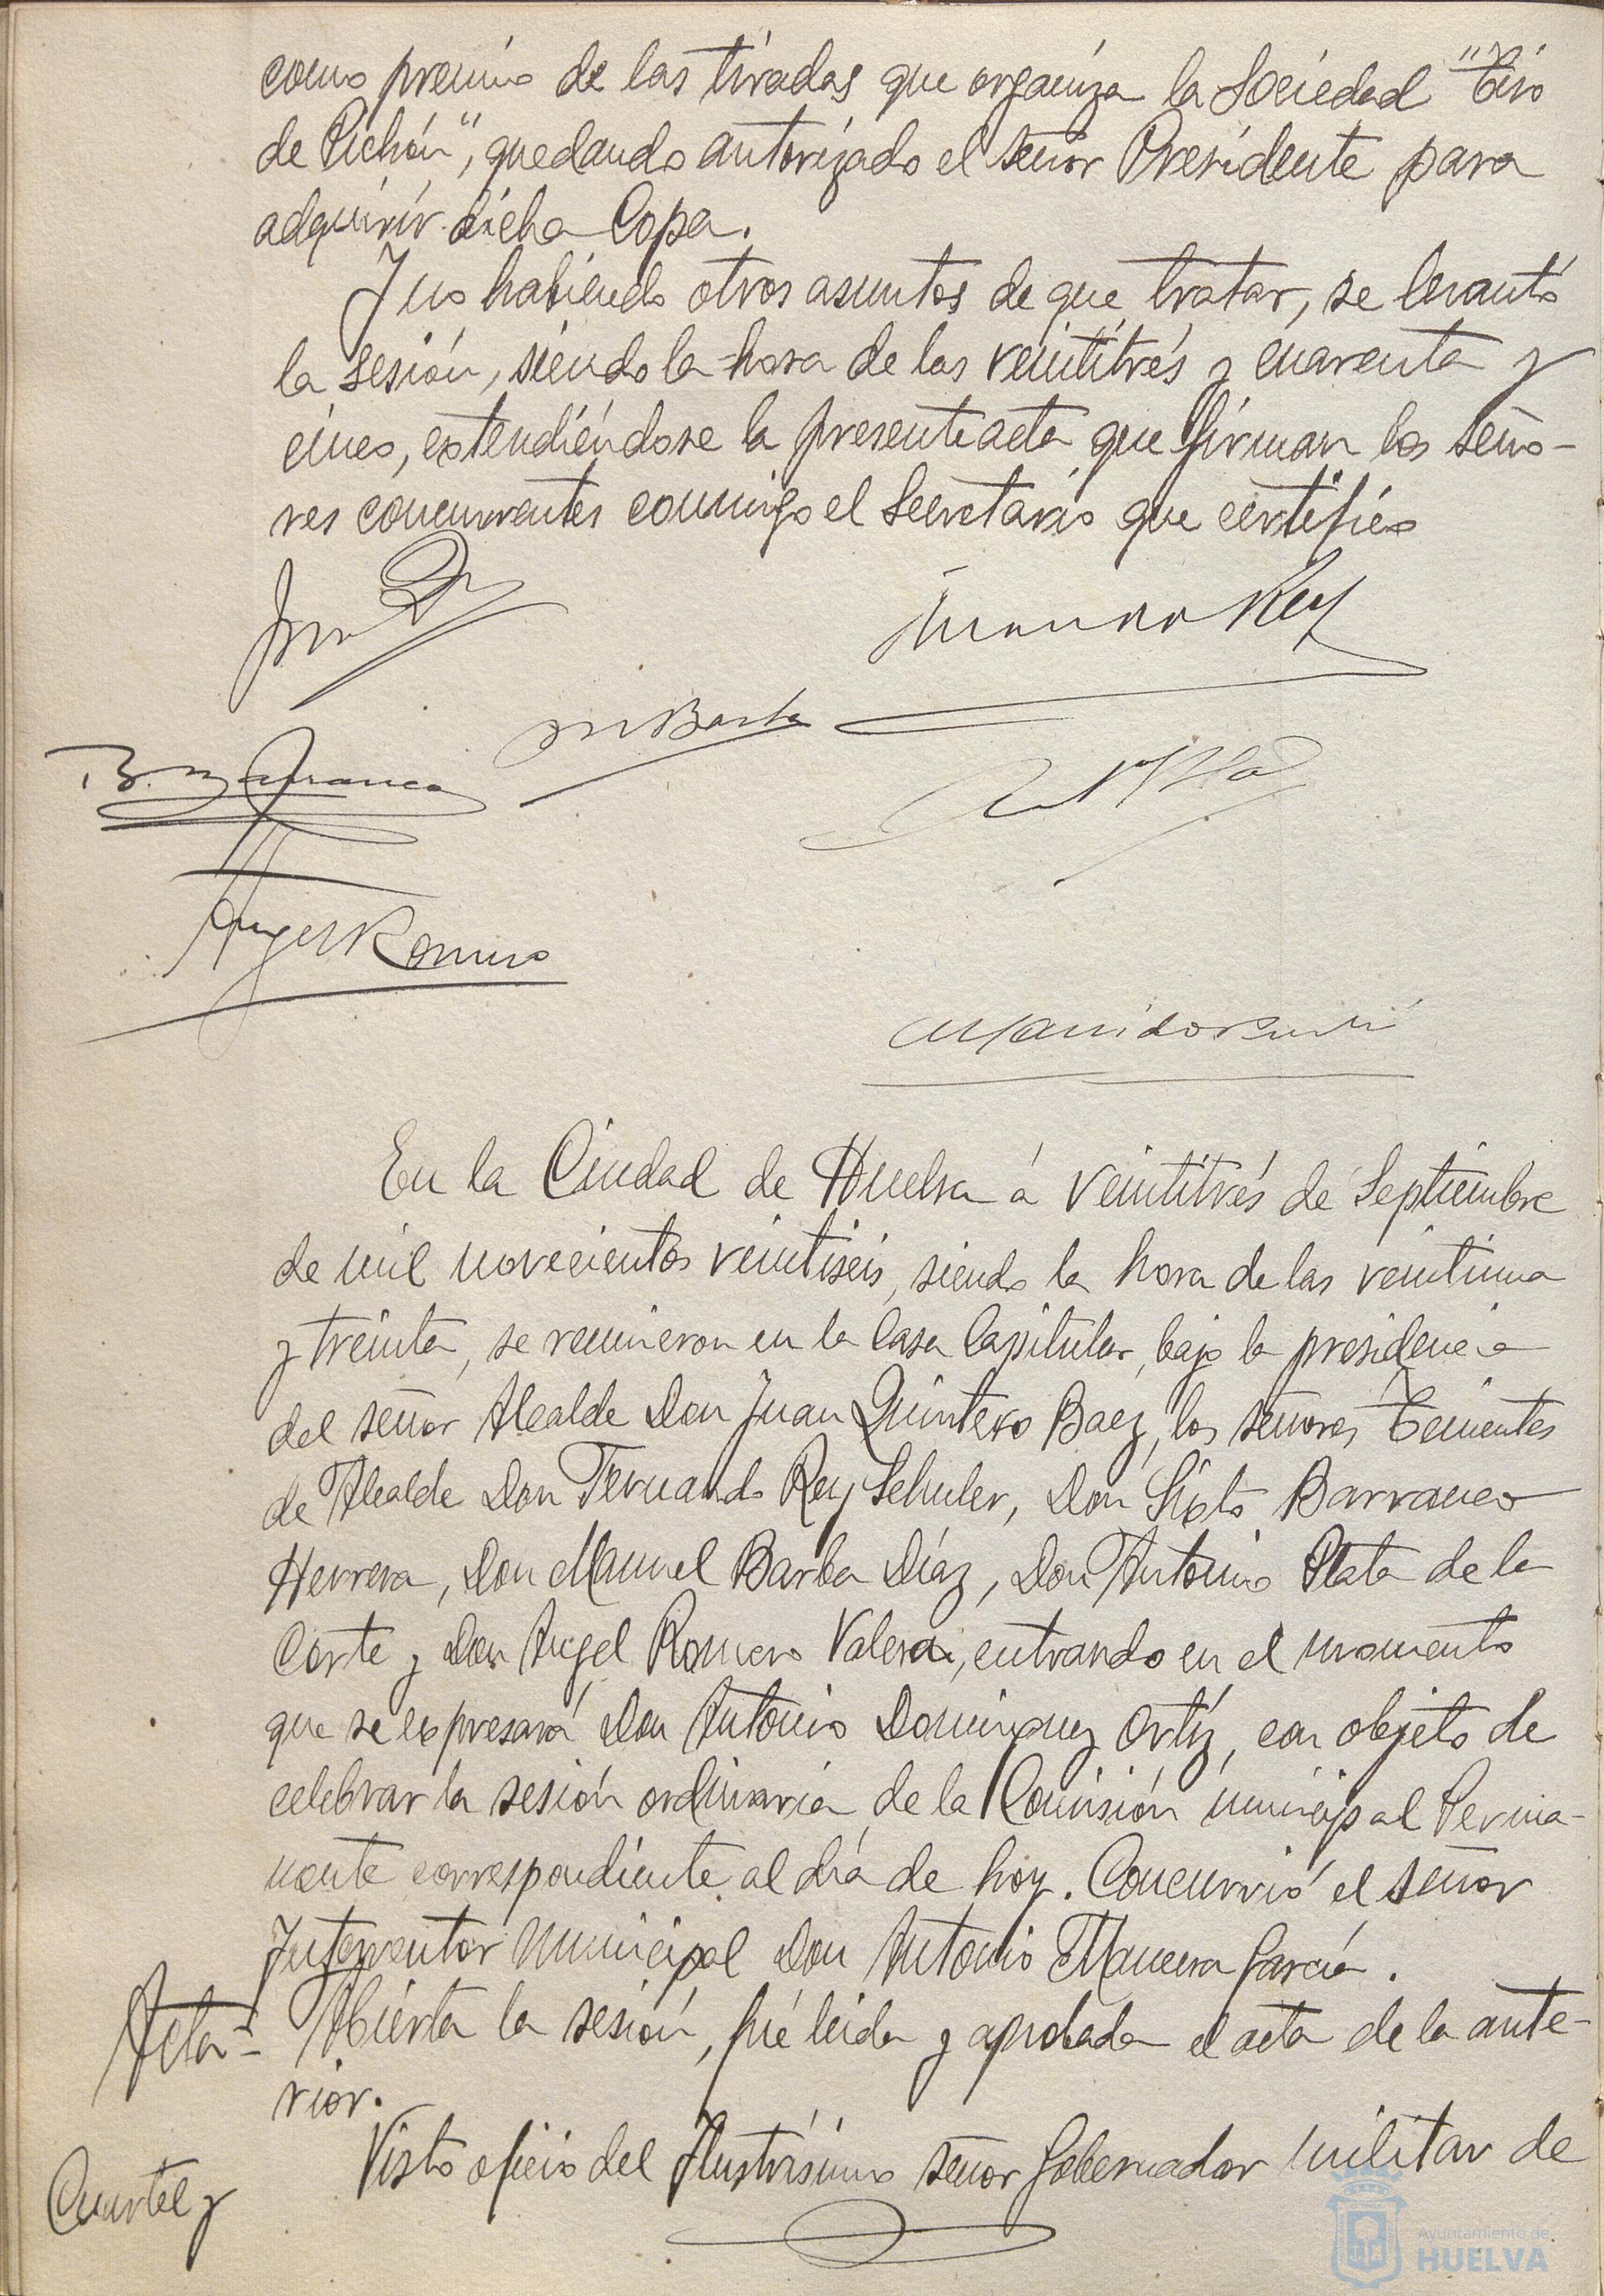 como premio de las tiradas que organiza la Sociedad "Tiro
de Pichón", quedando autorizado el señor Presidente para
adquirir dicha Copa.
Y no habiendo otros asuntos de que tratar, se levantó
la sesión, siendo la hora de las veintitrés y cuarenta y
cinco, extendiéndose la presente acta que firman los seño-
res concurrentes conmigo el Secretario que certifico
Rey
M Barba
Angel Romero
En la Ciudad de Huelva á veintitrés de Septiembre
de mil novecientos veintiseis, siendo la hora de las veintiuna
y treinta, se reunieron en la Casa Capitular, bajo la presidencia
del señor Alcalde Don Juan Quintero Baez, los señores Tenientes
de Alcalde Don Fernando Rey Schuler, Don Sixto Barranco
Herrera, Don Manuel Barba Díaz, Don Antonio Plata de la
Corte y Don Angel Romero Valera, entrando en el momento
que se expresará Don Antonio Dominguez Ortíz, con objeto de
celebrar la sesión ordinaria de la Comisión municipal Perma-
nente correspondiente al día de hoy. Concurrió el señor
Interventor municipal Don Antonio Manuera García.
Acta= Abierta la sesión, fué leida y aprobada el acta de la ante-
rior.
Cuartel y Visto oficio del Ilustrísimo señor Gobernador militar de
Ayuntamiento de
HUELVA